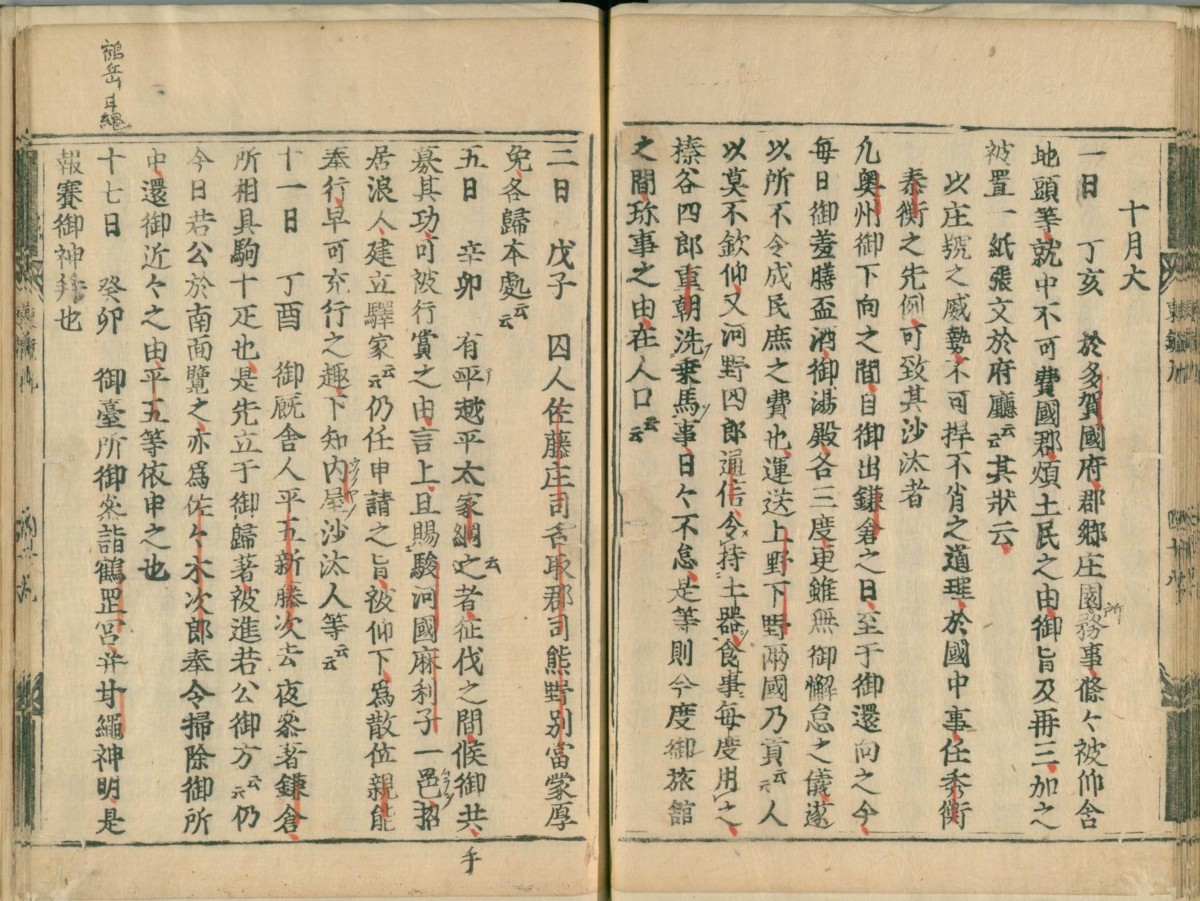 十月大
一日　丁亥　於多賀國府郡郷庄園務事條々被仰含
所
地頭等就中不可費國郡煩土民之由御旨及再三加之
被置一紙張文於府廳云々其狀云
以庄號之威勢不可押不肖之道理於國中事任秀衡
泰衡之先例可致其沙汰者
凡奥州御下向之間自御出鎌倉之日至于御還向之今
毎日御羞膳盃酒御湯殿各三度更雖無御懈怠之儀遂
以所不令成民庶之費也運送上野下野兩國乃貢云々人
以莫不欽仰又河野四郎通信令持土器食事毎度用之
榛谷四郎重朝洗乗馬事日々不怠是等則今度御旅館
之間珎事之由在人口云々
二日　戊子　囚人佐藤庄司名取郡司熊野別當蒙厚
免各歸本處云々
五日　辛卯　有平越平太家綱之者征伐之間候御共
云
手
募其功可被行賞之由言上且賜駿河國麻利子一邑招
居浪人建立驛家云々仍任申請之旨被仰下為散位親能
奉行早可充行之趣下知内屋沙汰人等云々
十一日　丁酉　御厩舎人平五新藤次去夜参著鎌倉
所相具駒十疋也是先立于御歸著被進若公御方云々仍
今日若公於南面覽之亦爲佐々木次郎奉令掃除御所
中還御近々之由平五等依申之也
十七日　癸卯　御臺所御参詣鶴罡宮并甘繩神明是
報賽御神拜也